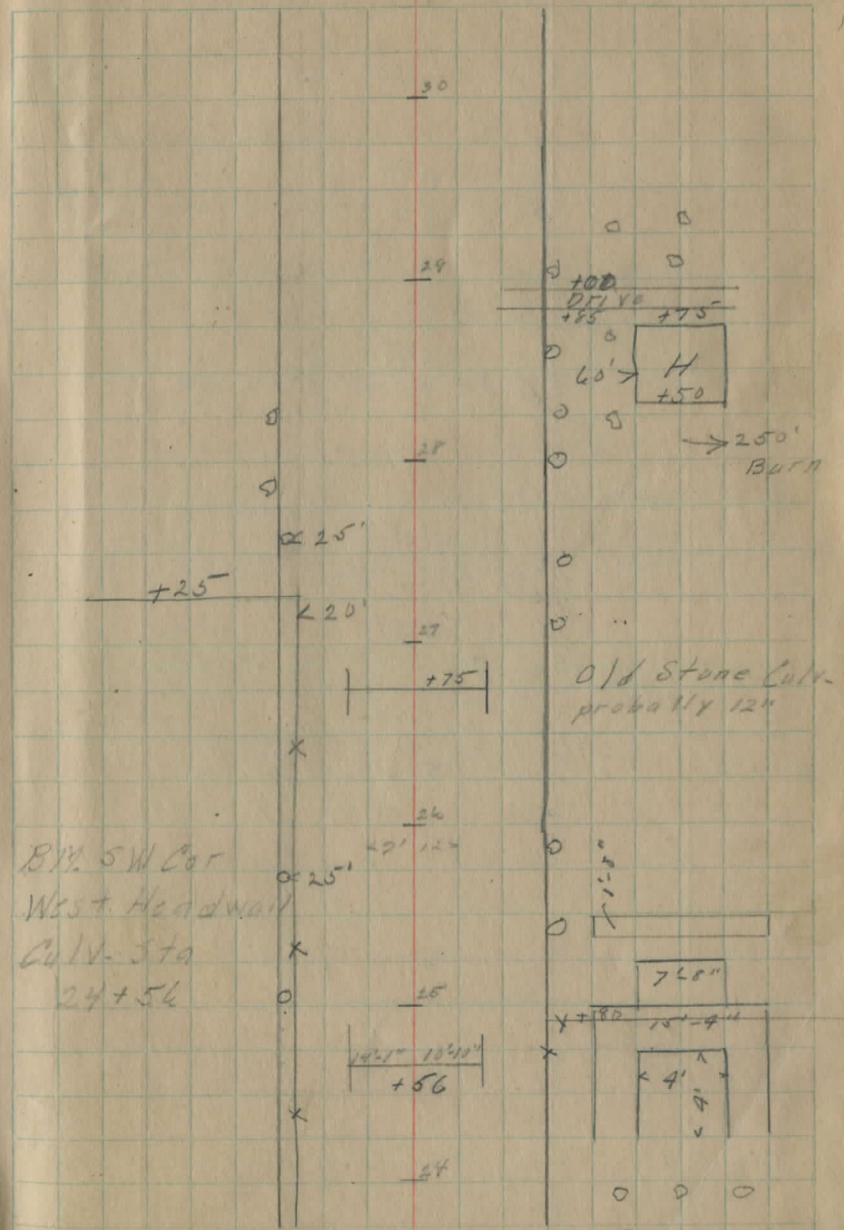 30
29
+00
Drive
+85 +75
60' H
+50
→ 250'
Burn
28
25'
+25
20'
27
+75
Old Stone Culv.
probally 12"
26
12"
25'
1'-8"
BM. SW Cor
West Headwall
Culv. Sta
24+56
7'-8"
25
+80 15'-4"
14'-1" 10'-10"
+56
4'
4'
24